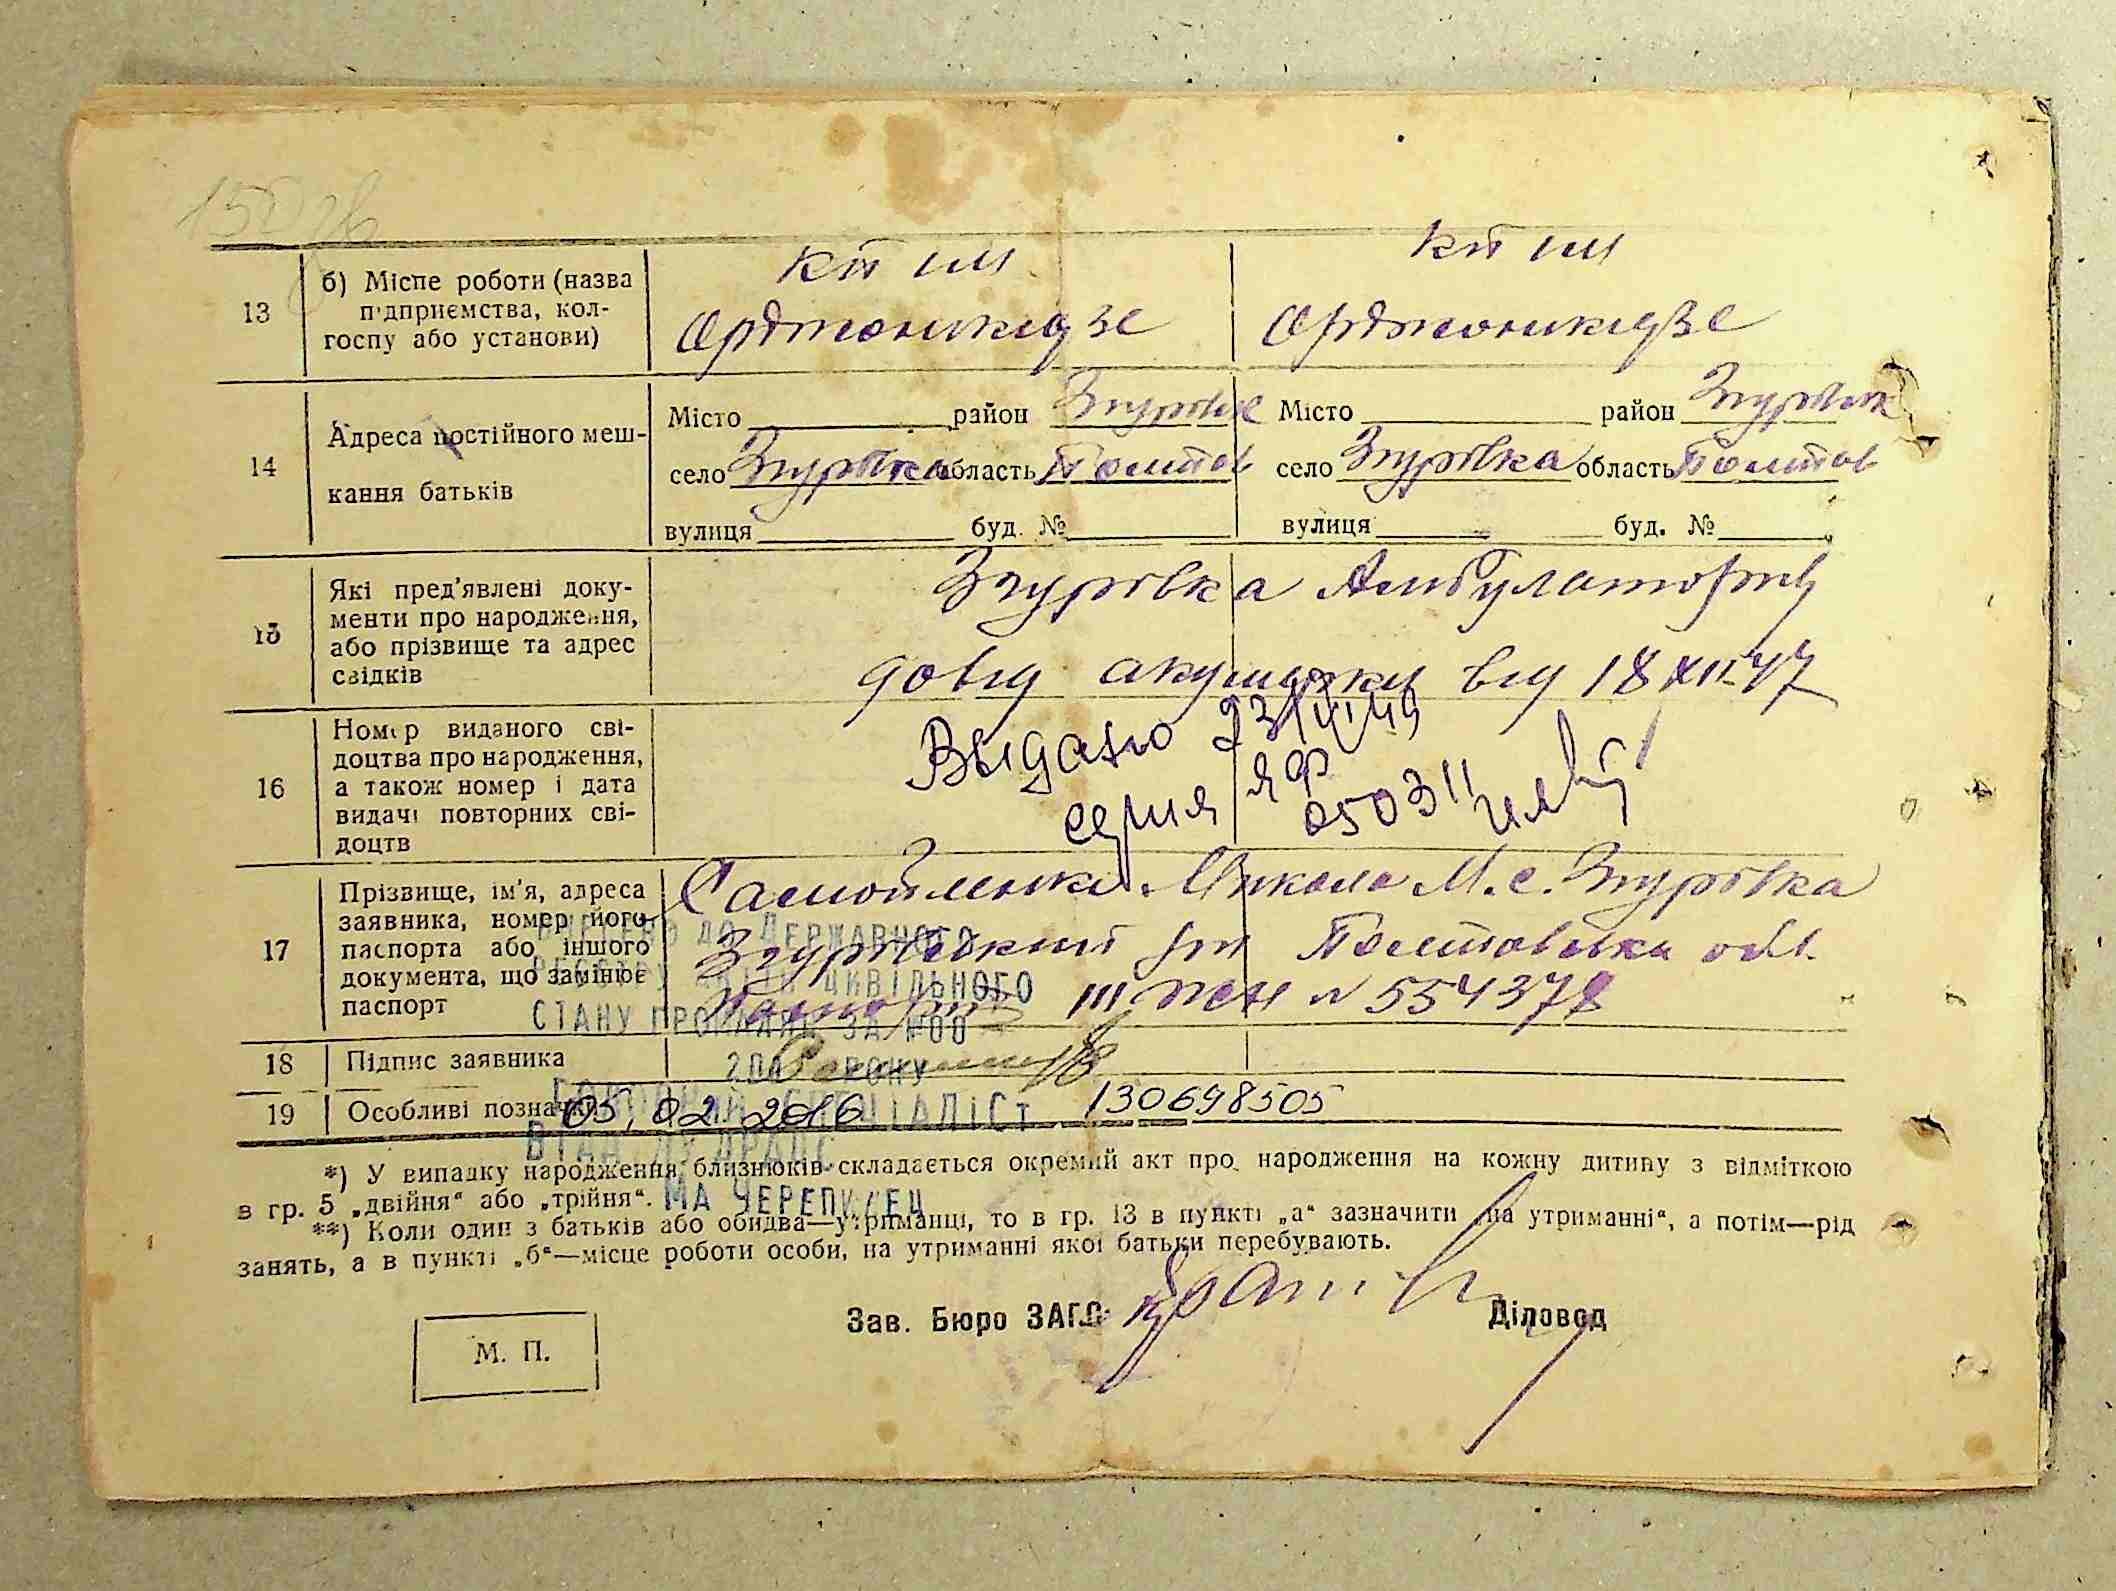 13
б) Місце роботи (назва
підприємства, кол-
госпу або установи)
кп ім
Орджоникідзе
кп ім
Орджоникідзе
14
Адреса постійного меш-
кання батьків
Місто район Згурівськ
село Згурівка область Полтав
вулиця буд. №
Місто район Згурівськ
село Згурівка область Полтав
вулиця буд. №
15
Які пред'явлені доку-
менти про народження,
або прізвище та адрес
свідків
Згурівка Амбулаторія
довід акушерки від 18 XII-47
16
Номер виданого сві-
доцтва про народження,
а також номер і дата
видачі повторних сві-
доцтв
Выдано 23/VI 49
серия ЯФ 050311
17
Прізвище, ім'я, адреса
заявника, номер його
паспорта або іншого
документа, що замінює
паспорт
Самойленко Микола М. с. Згурівка
Згурівський рн Полтавська обл.
Паспорт III ЖН № 554378
ДО ДЕРЖАВНОГО
ЦИВІЛЬНОГО
СТАНУ ГРОМАДЯН ЗА №00
РОКУ
18
Підпис заявника
19
Особливі позначки
05.02.2016 130698505
СПЕЦІАЛІСТ
*) У випадку народження близнюків складається окремий акт про народження на кожну дитину з відміткою
в гр. 5 „двійня“ або „трійня“.
**) Коли один з батьків або обидва—утриманці, то в гр. 13 в пункті „а“ зазначити „на утриманні“, а потім—рід
занять, а в пункті „б“—місце роботи особи, на утриманні якої батьки перебувають.
Зав. Бюро ЗАГС
Діловод
М. П.